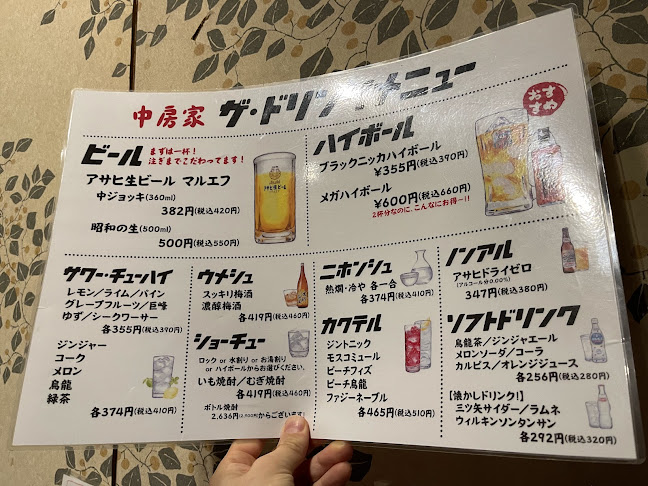 中房家 ザ・ドリンクメニュー
おすすめ
ビール まずは一杯!
注ぎまでこだわってます!
アサヒ生ビール マルエフ
中ジョッキ(360ml)
382円(税込420円)
昭和の生(500ml)
500円(税込550円)
ハイボール
ブラックニッカハイボール
¥355円(税込390円)
メガハイボール
¥600円(税込660円)
2杯分なのに、こんなにお得ー!!
サワー・チューハイ
レモン/ライム/パイン
グレープフルーツ/巨峰
ゆず/シークワーサー
各355円(税込390円)
ジンジャー
コーク
メロン
烏龍
緑茶
各374円(税込410円)
ウメシュ
スッキリ梅酒
濃醇梅酒
各419円(税込460円)
ショーチュー
ロック or 水割り or お湯割り
or ハイボールからお選びください。
いも焼酎/むぎ焼酎
各419円(税込460円)
ボトル焼酎
2,636円(2,900円)からございます!
ニホンシュ
熱燗・冷や 各一合
各374円(税込410円)
カクテル
ジントニック
モスコミュール
ピーチフィズ
ピーチ烏龍
ファジーネーブル
各465円(税込510円)
ノンアル
アサヒドライゼロ
(アルコール分0.00%)
347円(税込380円)
ソフトドリンク
烏龍茶/ジンジャエール
メロンソーダ/コーラ
カルピス/オレンジジュース
各256円(税込280円)
【懐かしドリンク!】
三ツ矢サイダー/ラムネ
ウィルキンソンタンサン
各292円(税込320円)